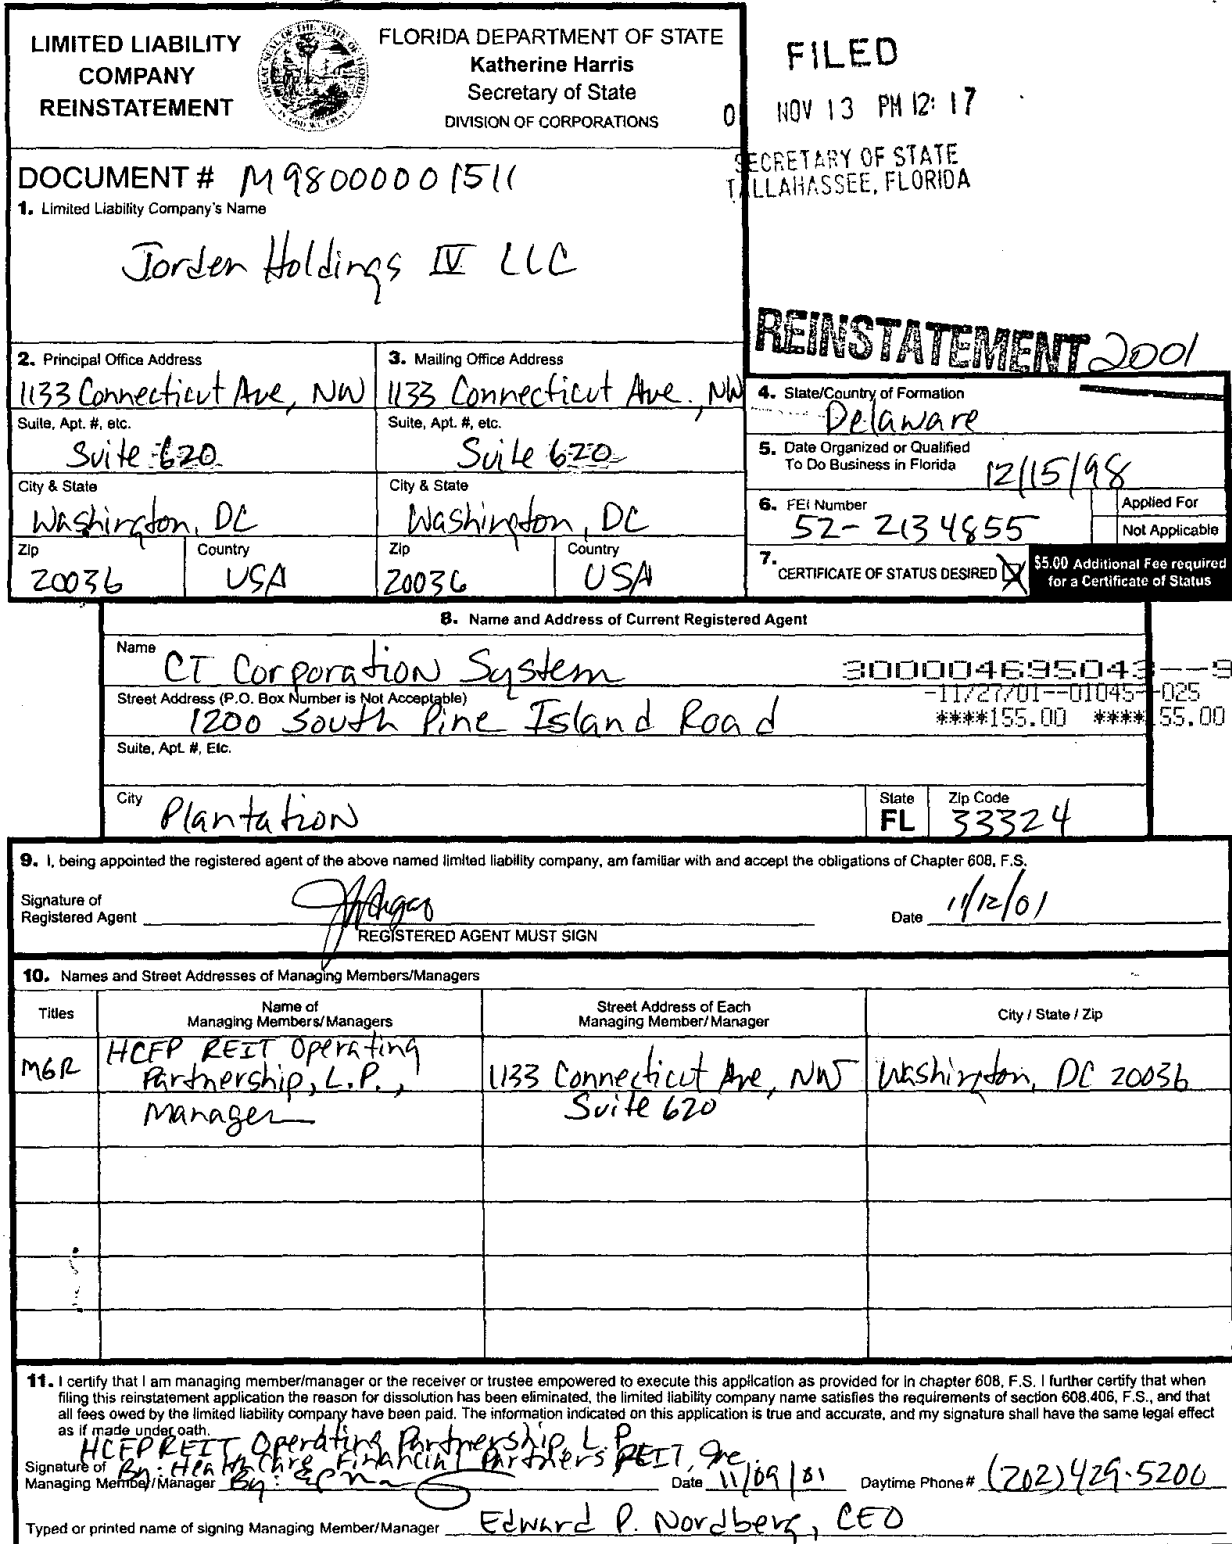 LIMITED LIABILITY
COMPANY
REINSTATEMENT
FLORIDA DEPARTMENT OF STATE
Katherine Harris
Secretary of State
DIVISION OF CORPORATIONS
FILED
0 NOV 13 PM 12: 17
SECRETARY OF STATE
TALLAHASSEE, FLORIDA
DOCUMENT # M98000001511
1. Limited Liability Company's Name
Jorden Holdings IV LLC
REINSTATEMENT 2001
2. Principal Office Address
1133 Connecticut Ave, NW
Suite, Apt. #, etc.
Suite 620
City & State
Washington, DC
Zip
20036
Country
USA
3. Mailing Office Address
1133 Connecticut Ave. NW
Suite, Apt. #, etc.
Suite 620
City & State
Washington, DC
Zip
20036
Country
USA
4. State/Country of Formation
Delaware
5. Date Organized or Qualified
To Do Business in Florida
12/15/98
6. FEI Number
52-2134855
Applied For
Not Applicable
7. CERTIFICATE OF STATUS DESIRED
$5.00 Additional Fee required
for a Certificate of Status
8. Name and Address of Current Registered Agent
Name
CT Corporation System
300004695043--9
Street Address (P.O. Box Number is Not Acceptable)
-11/27/01--01045--025
1200 South Pine Island Road
****155.00 ****155.00
Suite, Apt. #, Etc.
City
Plantation
State
FL
Zip Code
33324
9. I, being appointed the registered agent of the above named limited liability company, am familiar with and accept the obligations of Chapter 608, F.S.
Signature of
Registered Agent
Date 11/12/01
REGISTERED AGENT MUST SIGN
10. Names and Street Addresses of Managing Members/Managers
Titles
Name of
Managing Members/Managers
Street Address of Each
Managing Member/Manager
City / State / Zip
MGR
HCFP REIT Operating
Partnership, L.P.,
Manager
1133 Connecticut Ave, NW
Suite 620
Washington, DC 20036
11. I certify that I am managing member/manager or the receiver or trustee empowered to execute this application as provided for in chapter 608, F.S. I further certify that when
filing this reinstatement application the reason for dissolution has been eliminated, the limited liability company name satisfies the requirements of section 608.406, F.S., and that
all fees owed by the limited liability company have been paid. The information indicated on this application is true and accurate, and my signature shall have the same legal effect
as if made under oath.
HCFP REIT Operating Partnership, L.P.
By: HealthCare Financial Partners REIT, Inc.
Signature of
Managing Member/Manager By:
Date 11/09/01
Daytime Phone # (202) 429-5200
Typed or printed name of signing Managing Member/Manager Edward P. Nordberg, CEO